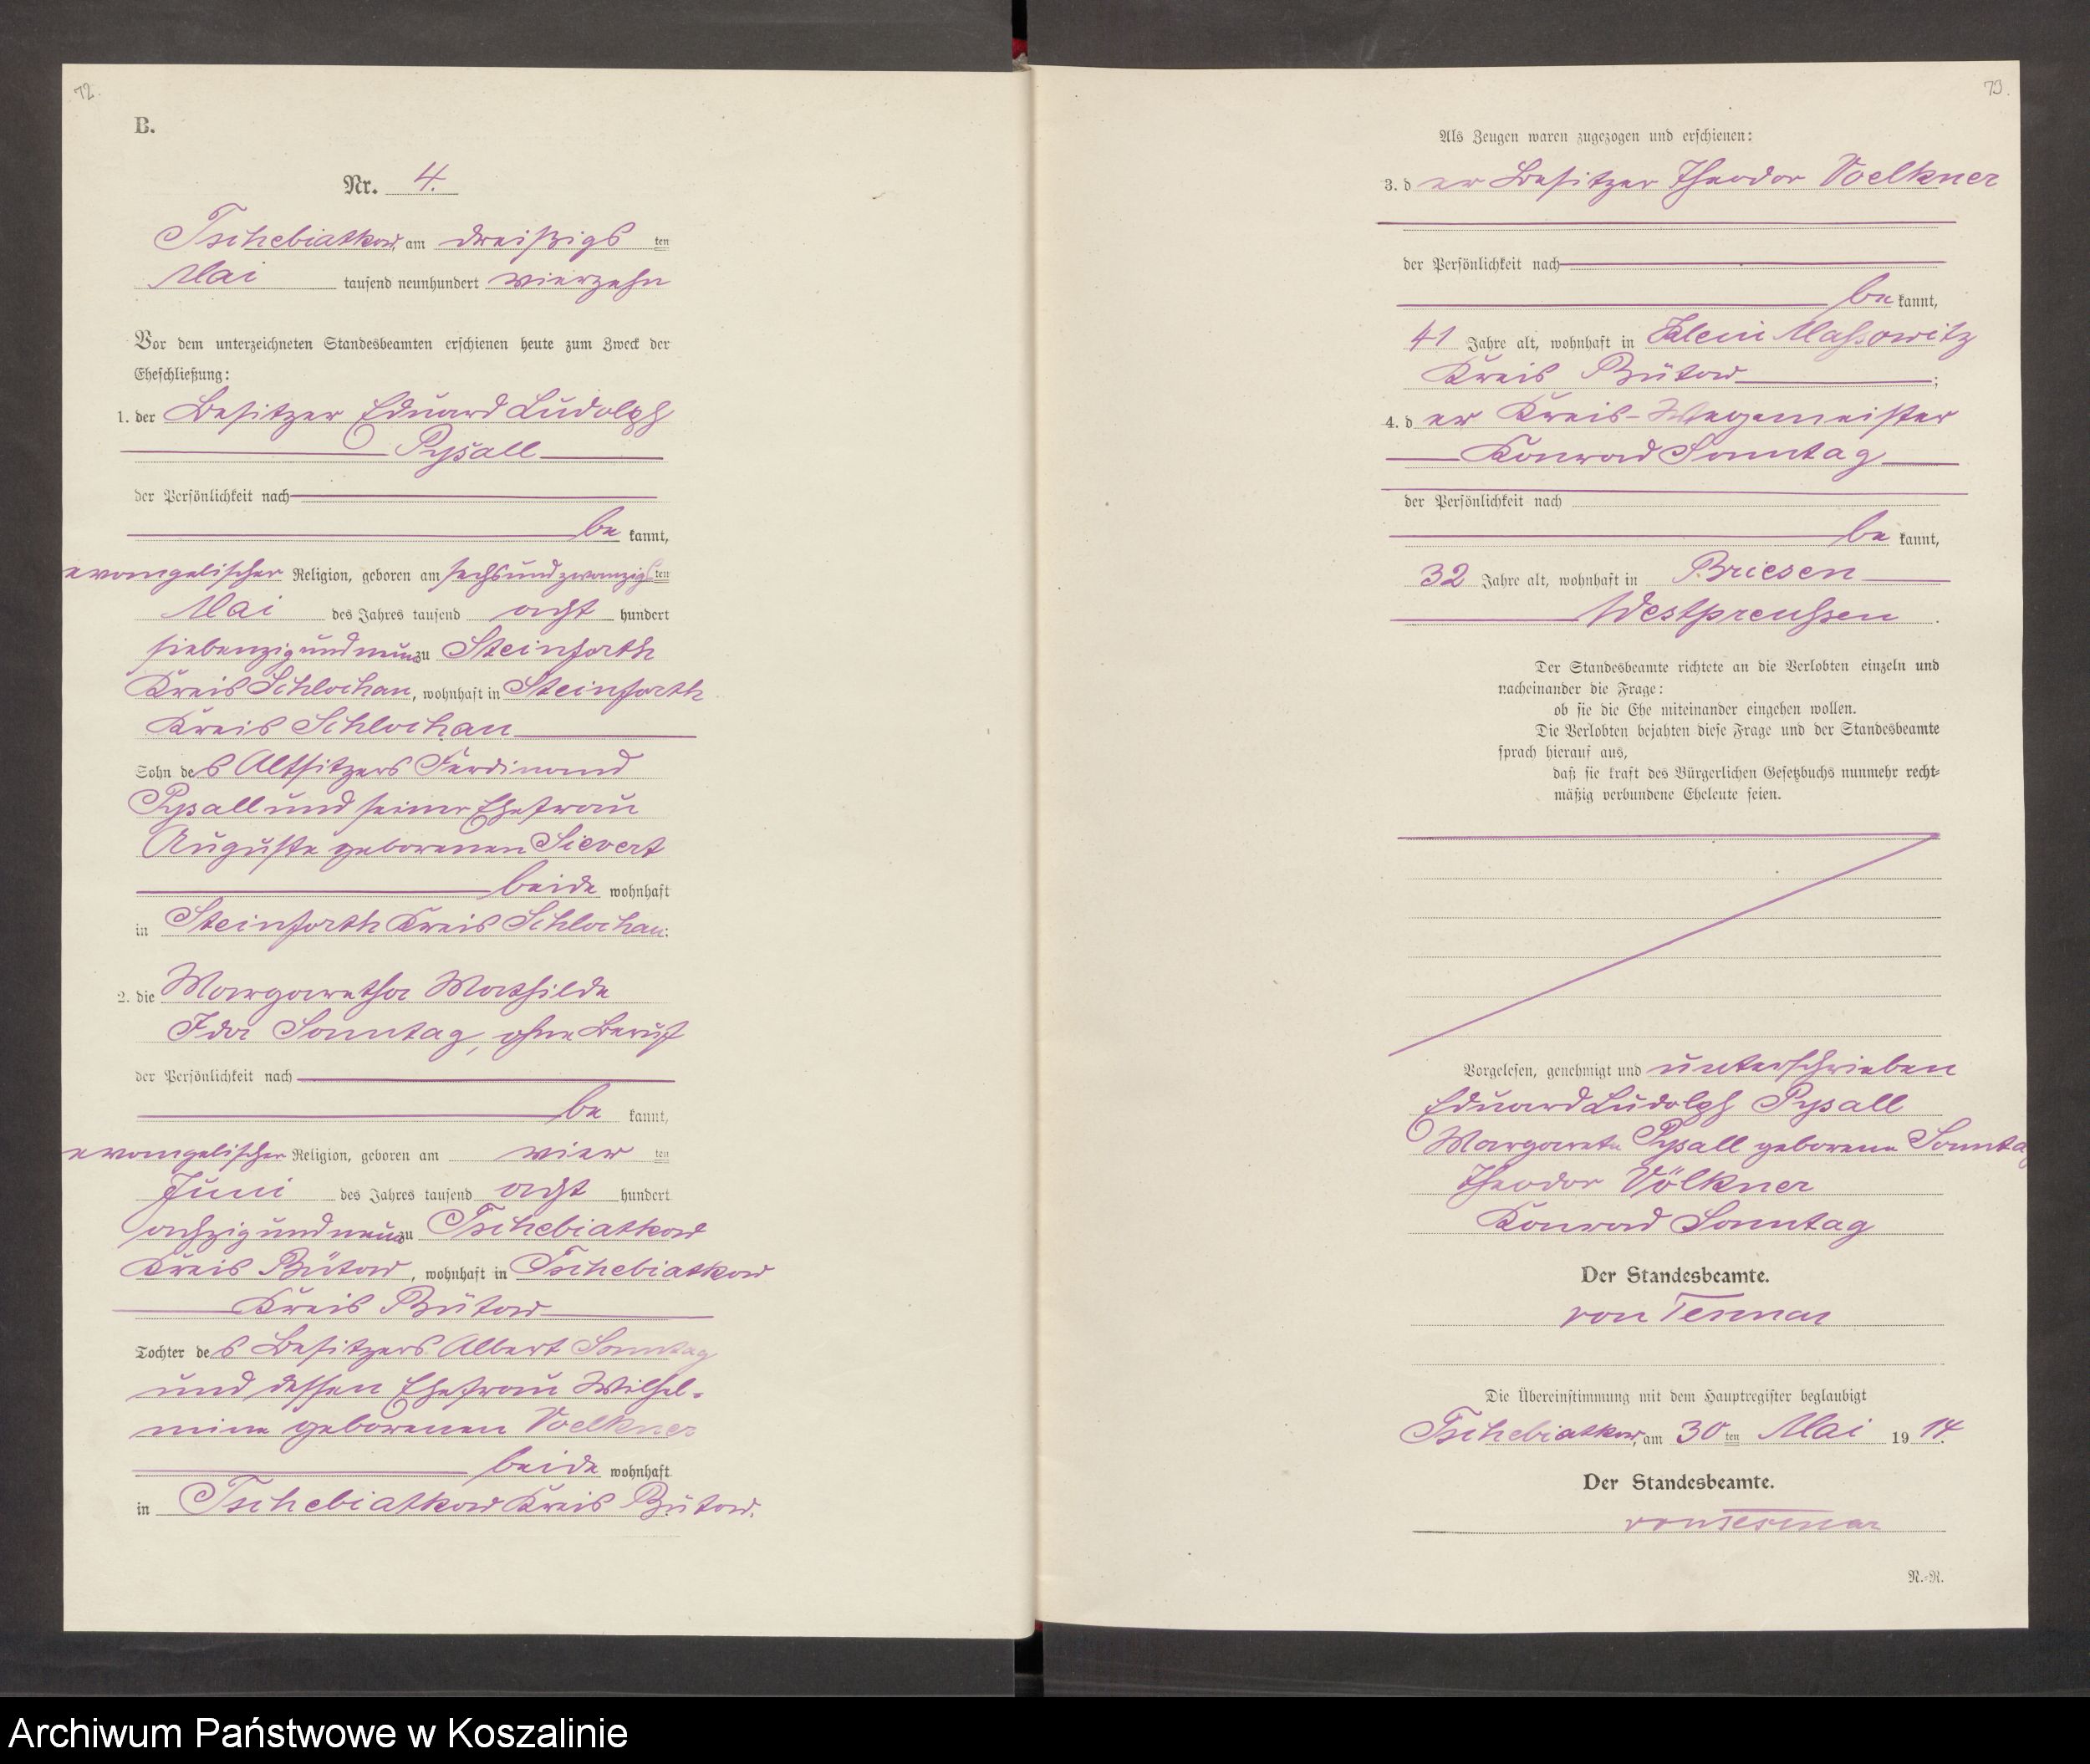 72.
B.
Nr. 4.
Tschebiatkow, am dreißigs ten
Mai tausend neunhundert vierzehn
Vor dem unterzeichneten Standesbeamten erschienen heute zum Zweck der
Eheschließung:
1. der Besitzer Eduard Ludolph
Rysall
der Persönlichkeit nach
be kannt,
evangelischer Religion, geboren am sechsundzwanzigs ten
Mai des Jahres tausend acht hundert
siebenzigundneun zu Steinforth
Kreis Schlochau, wohnhaft in Steinforth
Kreis Schlochau
Sohn des Altsitzers Ferdinand
und seiner Ehefrau
Auguste geborenen Sievert
beide wohnhaft
in Steinforth Kreis Schlochau.
2. die Margaretha Mathilde
Ida Sonntag, ohne Beruf
der Persönlichkeit nach
be kannt,
evangelischer Religion, geboren am vier ten
Juni des Jahres tausend acht hundert
achzigundneun zu Tschebiatkow
Kreis Bütow, wohnhaft in Tschebiatkow
Kreis Bütow
Tochter des Besitzers Albert Sonntag
und dessen Ehefrau Wilhel-
mine geborenen Voelkner
beide wohnhaft
in Tschebiatkow Kreis Bütow.
73.
Als Zeugen waren zugezogen und erschienen:
3. der Besitzer Theodor Voelkner
der Persönlichkeit nach
be kannt,
41 Jahre alt, wohnhaft in Klein Massowitz
Kreis Bütow;
4. der Kreis-Wegemeister
Konrad Sonntag
der Persönlichkeit nach
be kannt,
32 Jahre alt, wohnhaft in Briesen
Westpreussen.
Der Standesbeamte richtete an die Verlobten einzeln und
nacheinander die Frage:
ob sie die Ehe miteinander eingehen wollen.
Die Verlobten bejahten diese Frage und der Standesbeamte
sprach hierauf aus,
daß sie kraft des Bürgerlichen Gesetzbuchs nunmehr recht-
mäßig verbundene Eheleute seien.
Vorgelesen, genehmigt und unterschrieben
Eduard Ludolph
geborene Sonntag
Theodor Völkner
Konrad Sonntag
Der Standesbeamte.
von
Die Übereinstimmung mit dem Hauptregister beglaubigt
Tschebiatkow, am 30 ten Mai 19 14.
Der Standesbeamte.
von
R.-R.
Archiwum Państwowe w Koszalinie